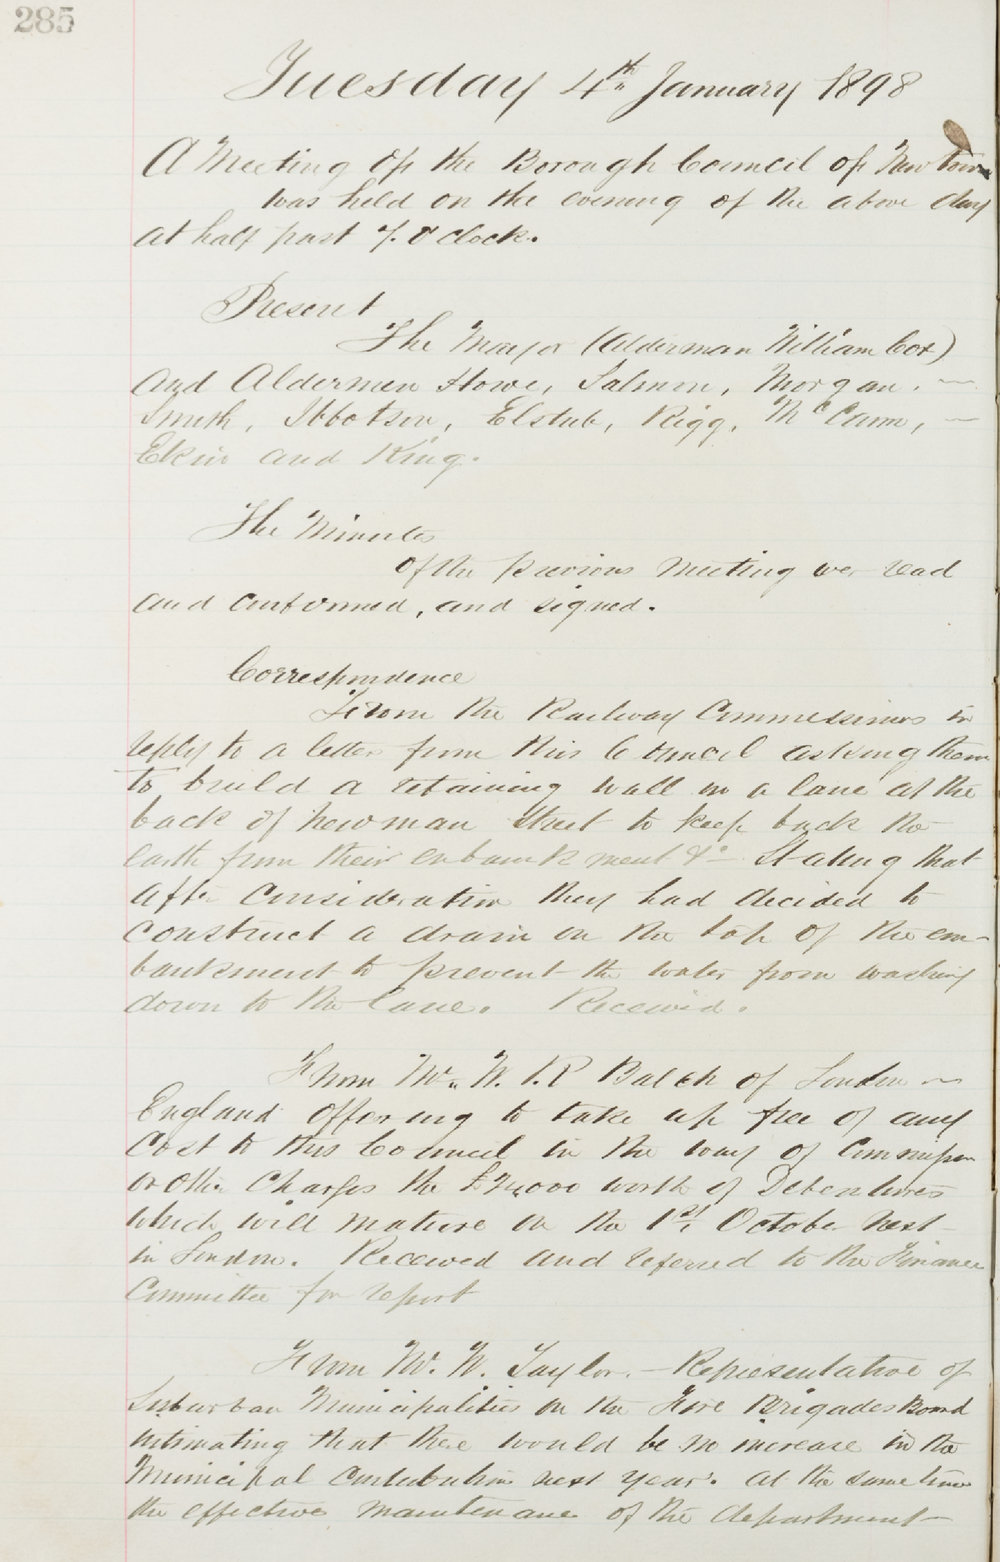 285
Tuesday 4th January 1898
A Meeting of the Borough Council of Newtown
was held on the evening of the above day
at half past 7. O'clock.
Present
The Mayor (Alderman William Cox)
and Aldermen Howe, Salmon, Morgan, —
Smith, Ibbotson, Elstub, Rigg, McCann, —
Ekin and King.
The Minutes
of the previous meeting wer read
and confirmed, and signed.
Correspondence
From the Railway Commissioners in
reply to a letter from this Council asking them
to build a retaining wall in a lane at the
back of Newman Street to keep back the
earth from their enbankment &c — Stating that
after consideration they had decided to
construct a drain on the top of the em-
bankment to prevent the water from washing
down to the lane. Received.
From Mr. W. I. R Balch of London —
England offering to take up free of any
Cost to this Council in the way of Commission
or other Charges the worth of Debentures
which will mature on the 1st. October next
in London. Received and referred to the Finance
Committee for report
From Mr. W. Taylor. — Representative of
Suburban Municipalities on the Fire Brigades Board
intimating that there would be no increase in the
Municipal Contributions next year. at the same time
the effective maintenance of the department —